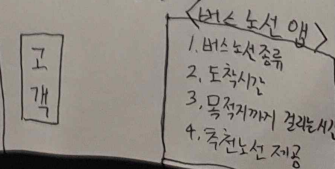 고
객
<버스노선 앱>
1. 버스노선종류
2. 도착시간
3. 목적지까지 걸리는시간
4. 추천노선 제공